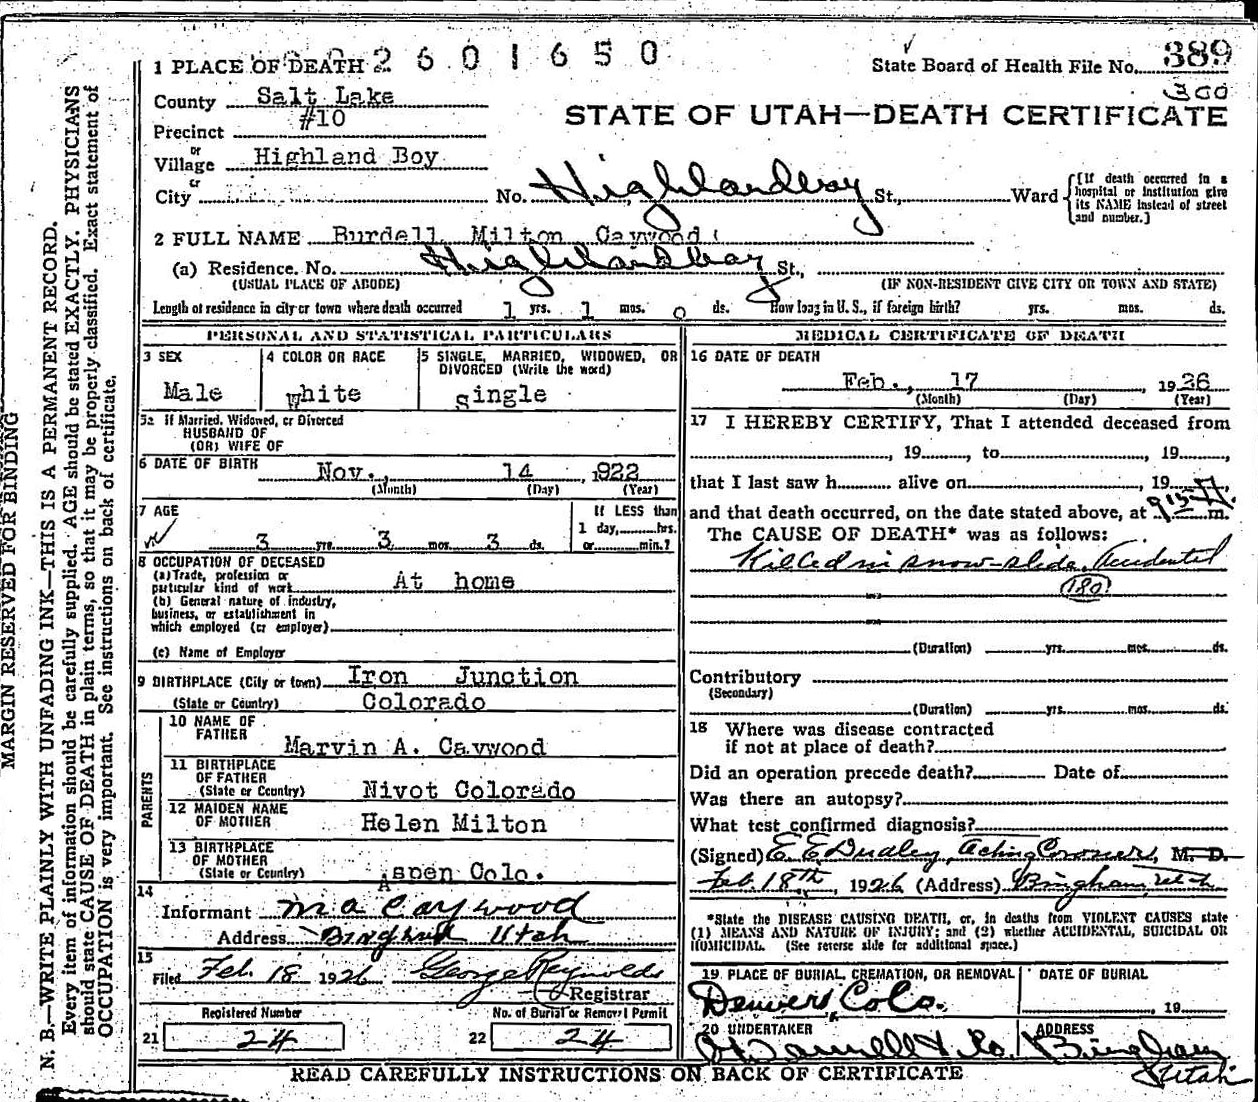 MARGIN RESERVED FOR BINDING
N. B.—WRITE PLAINLY WITH UNFADING INK—THIS IS A PERMANENT RECORD.
Every item of information should be carefully supplied. AGE should be stated EXACTLY. PHYSICIANS
should state CAUSE OF DEATH in plain terms, so that it may be properly classified. Exact statement of
OCCUPATION is very important. See instructions on back of certificate.
1 PLACE OF DEATH 2601650
State Board of Health File No. 389
300
County Salt Lake
STATE OF UTAH—DEATH CERTIFICATE
Precinct #10
or
Village Highland Boy
or
City No. Highlandboy St., Ward
[If death occurred in a
hospital or institution give
its NAME instead of street
and number.]
2 FULL NAME Burdell Milton Caywood
(a) Residence. No. Highlandboy St.,
(USUAL PLACE OF ABODE) (IF NON-RESIDENT GIVE CITY OR TOWN AND STATE)
Length of residence in city or town where death occurred 1 yrs. 1 mos. 0 ds. How long in U. S., if foreign birth? yrs. mos. ds.
PERSONAL AND STATISTICAL PARTICULARS
3 SEX
Male
4 COLOR OR RACE
White
5 SINGLE, MARRIED, WIDOWED, OR
DIVORCED (Write the word)
Single
5a If Married, Widowed, or Divorced
HUSBAND OF
(OR) WIFE OF
6 DATE OF BIRTH Nov., 14, 1922
(Month) (Day) (Year)
7 AGE
3 yrs. 3 mos. 3 ds.
If LESS than
1 day, hrs.
or min.?
8 OCCUPATION OF DECEASED
(a) Trade, profession or
particular kind of work At home
(b) General nature of industry,
business, or establishment in
which employed (or employer)
(c) Name of Employer
9 BIRTHPLACE (City or town) Iron Junction
(State or Country) Colorado
PARENTS
10 NAME OF
FATHER Marvin A. Caywood
11 BIRTHPLACE
OF FATHER
(State or Country) Nivot Colorado
12 MAIDEN NAME
OF MOTHER Helen Milton
13 BIRTHPLACE
OF MOTHER
(State or Country) Aspen Colo.
14
Informant M A Caywood
Address Bingham Utah
15
Filed Feb. 18 1926 George Reynolds
Registrar
Registered Number
21 24
No. of Burial or Removal Permit
22 24
MEDICAL CERTIFICATE OF DEATH
16 DATE OF DEATH
Feb., 17, 1926
(Month) (Day) (Year)
17 I HEREBY CERTIFY, That I attended deceased from
, 19 , to , 19 ,
that I last saw h alive on , 19 ,
and that death occurred, on the date stated above, at 9 15 m.
The CAUSE OF DEATH* was as follows:
Killed in snow-slide. Accidental
180
(Duration) yrs. mos. ds.
Contributory
(Secondary)
(Duration) yrs. mos. ds.
18 Where was disease contracted
if not at place of death?
Did an operation precede death? Date of
Was there an autopsy?
What test confirmed diagnosis?
(Signed) E. E. Dudley, Acting Coroner, M. D.
Feb. 18th, 1926 (Address) Bingham, Utah
*State the DISEASE CAUSING DEATH, or, in deaths from VIOLENT CAUSES state
(1) MEANS AND NATURE OF INJURY; and (2) whether ACCIDENTAL, SUICIDAL OR
HOMICIDAL. (See reverse side for additional space.)
19 PLACE OF BURIAL, CREMATION, OR REMOVAL
Denver, Colo.
DATE OF BURIAL
, 19
20 UNDERTAKER
O'Donnell & Co.
ADDRESS
Bingham
Utah
READ CAREFULLY INSTRUCTIONS ON BACK OF CERTIFICATE